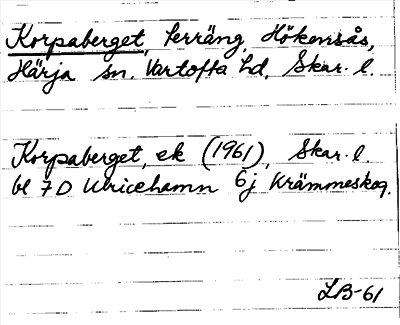 Korpaberget, terräng, Hökensås,
Härja sn. Vartofta hd. Skar. l.
Korpaberget, ek (1961), Skar. l.
bl 7D Ulricehamn 6j Krämmeskog.
LB-61